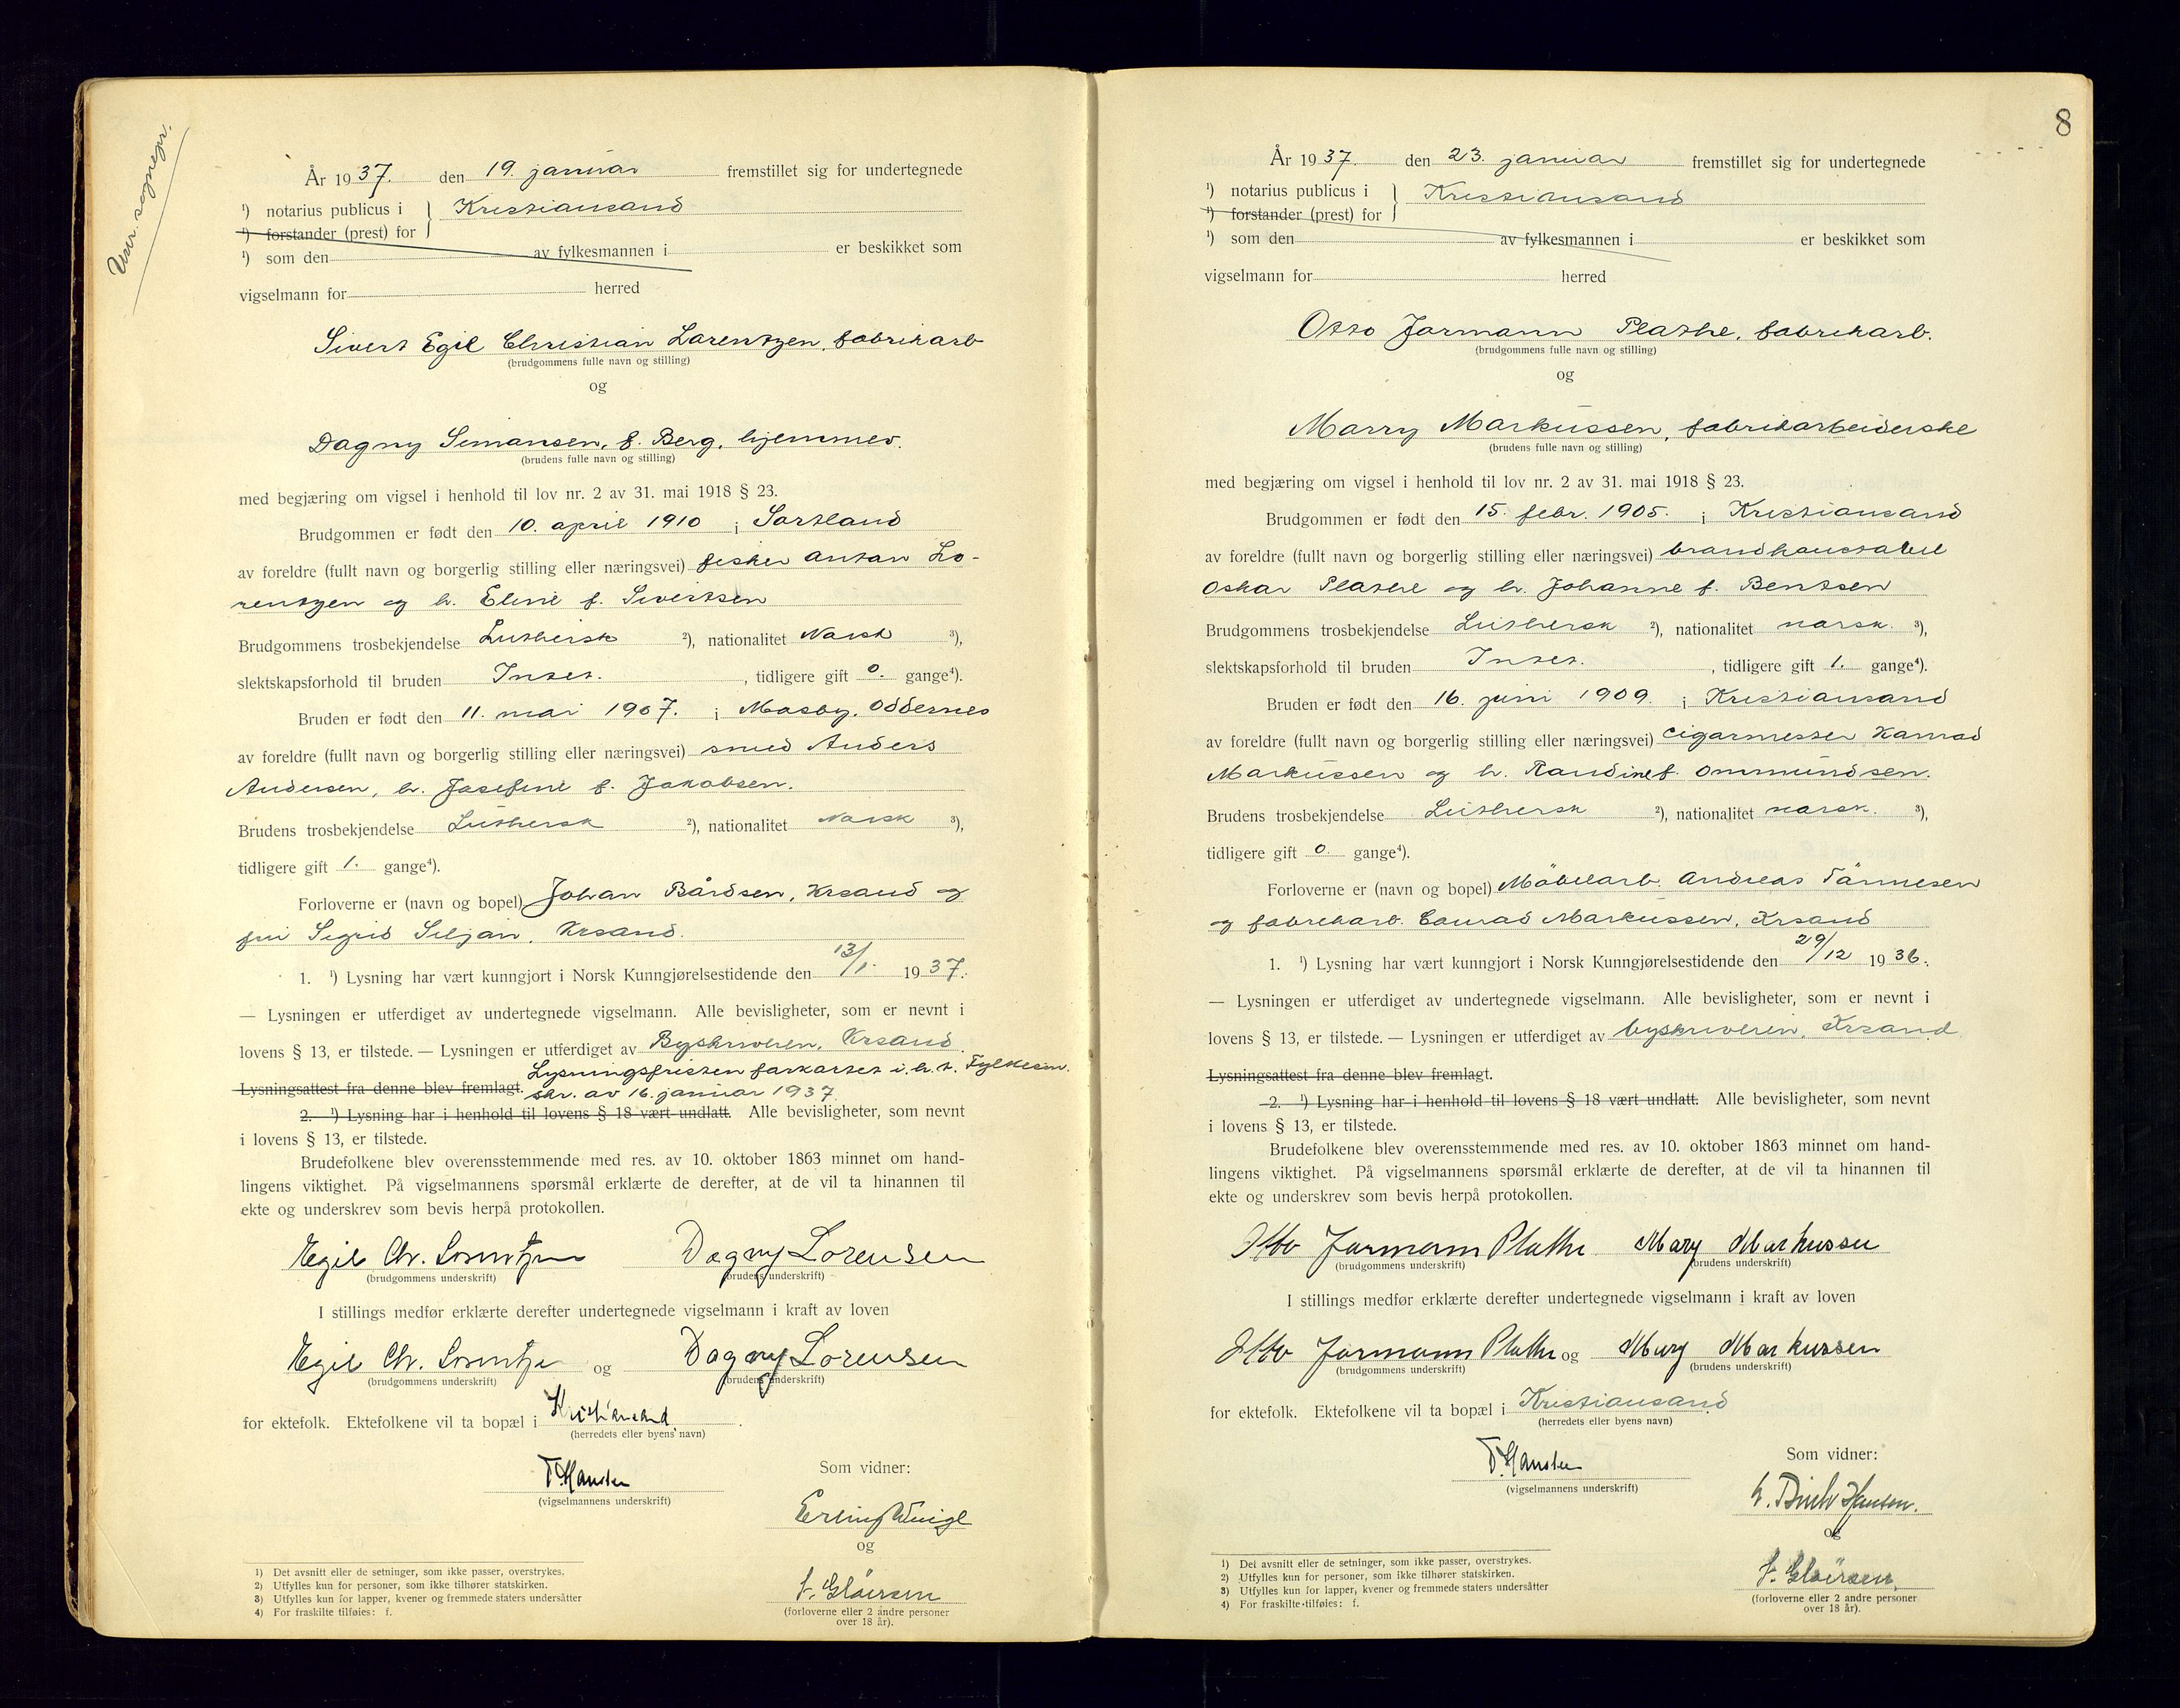 Unr. sognepr.
År 1937. den 19. januar fremstillet sig for undertegnede
¹) notarius publicus i } Kristiansand
¹) forstander (prest) for
¹) som den av fylkesmannen i er beskikket som
vigselmann for herred
Sivert Egil Christian Lorentzen, fabrikarb
(brudgommens fulle navn og stilling)
og
Dagny Simonsen, f. Berg, hjemmev.
(brudens fulle navn og stilling)
med begjæring om vigsel i henhold til lov nr. 2 av 31. mai 1918 § 23.
Brudgommen er født den 10. april 1910 i Sortland
av foreldre (fullt navn og borgerlig stilling eller næringsvei) fisker Anton Lo-
rentzen og h. Eline f. Sivertsen
Brudgommens trosbekjendelse Luthersk ²), nationalitet Norsk ³),
slektskapsforhold til bruden Intet. , tidligere gift 0. gange⁴).
Bruden er født den 11. mai 1907. i Mosby, Oddernes
av foreldre (fullt navn og borgerlig stilling eller næringsvei) smed Anders
Andersen, h. Josefine f. Jakobsen.
Brudens trosbekjendelse Luthersk ²), nationalitet Norsk ³),
tidligere gift 1. gange⁴).
Forloverne er (navn og bopel) Johan Bårdsen, Krsand og
fru Sigrid Siljan, Krsand.
1. ¹) Lysning har vært kunngjort i Norsk Kunngjørelsestidende den 13/1. 1937.
— Lysningen er utferdiget av undertegnede vigselmann. Alle bevisligheter, som er nevnt i
lovens § 13, er tilstede. — Lysningen er utferdiget av Byskriveren, Krsand.
Lysningsfristen forkortet i.h.t. Fylkesm.
Lysningsattest fra denne blev fremlagt. skr. av 16. januar 1937.
2. ¹) Lysning har i henhold til lovens § 18 vært undlatt. Alle bevisligheter, som nevnt
i lovens § 13, er tilstede.
Brudefolkene blev overensstemmende med res. av 10. oktober 1863 minnet om hand-
lingens viktighet. På vigselmannens spørsmål erklærte de derefter, at de vil ta hinannen til
ekte og underskrev som bevis herpå protokollen.
Egil Chr. Lorentzen Dagny Lorensen
(brudgommens underskrift) (brudens underskrift)
I stillings medfør erklærte derefter undertegnede vigselmann i kraft av loven
Egil Chr. Lorentzen og Dagny Lorensen
(brudgommens underskrift) (brudens underskrift)
for ektefolk. Ektefolkene vil ta bopæl i Kristiansand.
(herredets eller byens navn)
T. Hansen
(vigselmannens underskrift)
Som vidner:
Erling
og
(forloverne eller 2 andre personer
over 18 år).
1) Det avsnitt eller de setninger, som ikke passer, overstrykes.
2) Utfylles kun for personer, som ikke tilhører statskirken.
3) Utfylles kun for lapper, kvener og fremmede staters undersåtter
4) For fraskilte tilføies: f.
8
År 1937. den 23. januar fremstillet sig for undertegnede
¹) notarius publicus i } Kristiansand
¹) forstander (prest) for
¹) som den av fylkesmannen i er beskikket som
vigselmann for herred
Otto Jormann Plathe, fabrikarb.
(brudgommens fulle navn og stilling)
og
Marry Markussen, fabrikarbeiderske
(brudens fulle navn og stilling)
med begjæring om vigsel i henhold til lov nr. 2 av 31. mai 1918 § 23.
Brudgommen er født den 15. febr. 1905. i Kristiansand
av foreldre (fullt navn og borgerlig stilling eller næringsvei) brandkonstabel
Oskar Plathe og h. Johanne f. Bentsen
Brudgommens trosbekjendelse Luthersk ²), nationalitet norsk. ³),
slektskapsforhold til bruden Intet. , tidligere gift 1. gange⁴).
Bruden er født den 16. juni 1909. i Kristiansand
av foreldre (fullt navn og borgerlig stilling eller næringsvei) cigarmester Konrad
Markussen og h. Randine f. Ommundsen.
Brudens trosbekjendelse Luthersk ²), nationalitet norsk. ³),
tidligere gift 0. gange⁴).
Forloverne er (navn og bopel) Möbelarb. Andreas Tönnesen
og fabrikarb. Conrad Markussen, Krsand
1. ¹) Lysning har vært kunngjort i Norsk Kunngjørelsestidende den 29/12 1936.
— Lysningen er utferdiget av undertegnede vigselmann. Alle bevisligheter, som er nevnt i
lovens § 13, er tilstede. — Lysningen er utferdiget av byskriveren, Krsand.
Lysningsattest fra denne blev fremlagt.
2. ¹) Lysning har i henhold til lovens § 18 vært undlatt. Alle bevisligheter, som nevnt
i lovens § 13, er tilstede.
Brudefolkene blev overensstemmende med res. av 10. oktober 1863 minnet om hand-
lingens viktighet. På vigselmannens spørsmål erklærte de derefter, at de vil ta hinannen til
ekte og underskrev som bevis herpå protokollen.
Otto Jormann Plathe Mary Markussen
(brudgommens underskrift) (brudens underskrift)
I stillings medfør erklærte derefter undertegnede vigselmann i kraft av loven
Otto Jormann Plathe og Mary Markussen
(brudgommens underskrift) (brudens underskrift)
for ektefolk. Ektefolkene vil ta bopæl i Kristiansand
(herredets eller byens navn)
T. Hansen
(vigselmannens underskrift)
Som vidner:
Hansen.
og
(forloverne eller 2 andre personer
over 18 år).
1) Det avsnitt eller de setninger, som ikke passer, overstrykes.
2) Utfylles kun for personer, som ikke tilhører statskirken.
3) Utfylles kun for lapper, kvener og fremmede staters undersåtter
4) For fraskilte tilføies: f.